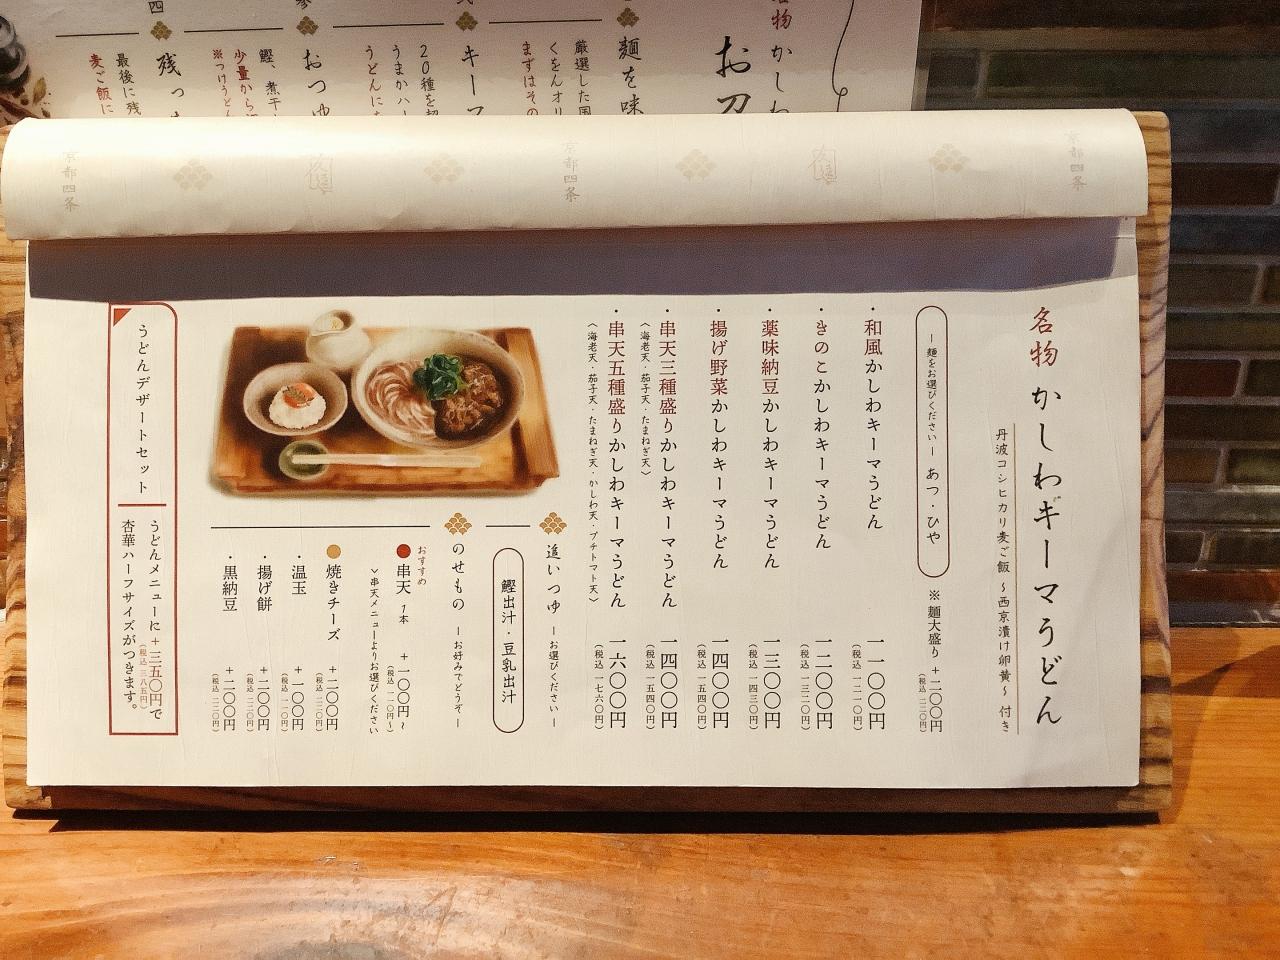 名物
かしわ
お刀
麺を味
厳選した国
くをんオリ
まずはその
キーマ
20種を超
うまかハー
うどんに
おつゆ
鰹、煮干
少量から
※つけうどん
四
残っ
最後に残
麦ご飯に
京都四条
京都四条
京都四条
名物 かしわキーマうどん
丹波コシヒカリ麦ご飯 〜西京漬け卵黄〜 付き
― 麺をお選びください ― あつ・ひや
※ 麺大盛り +二〇〇円
(税込 二二〇円)
・和風かしわキーマうどん 一一〇〇円
(税込 一二一〇円)
・きのこかしわキーマうどん 一二〇〇円
(税込 一三二〇円)
・薬味納豆かしわキーマうどん 一三〇〇円
(税込 一四三〇円)
・揚げ野菜かしわキーマうどん 一四〇〇円
(税込 一五四〇円)
・串天三種盛りかしわキーマうどん 一四〇〇円
(税込 一五四〇円)
〈海老天・茄子天・たまねぎ天〉
・串天五種盛りかしわキーマうどん 一六〇〇円
(税込 一七六〇円)
〈海老天・茄子天・たまねぎ天・かしわ天・プチトマト天〉
追いつゆ ― お選びください ―
鰹出汁・豆乳出汁
のせもの ― お好みでどうぞ ―
おすすめ
串天 1本 +一〇〇円〜
(税込 一一〇円〜)
＞串天メニューよりお選びください
焼きチーズ +二〇〇円
(税込 二二〇円)
・温玉 +一〇〇円
(税込 一一〇円)
・揚げ餅 +二〇〇円
(税込 二二〇円)
・黒納豆 +二〇〇円
(税込 二二〇円)
うどんデザートセット
うどんメニューに+三五〇円で
(税込 三八五円)
杏華ハーフサイズがつきます。